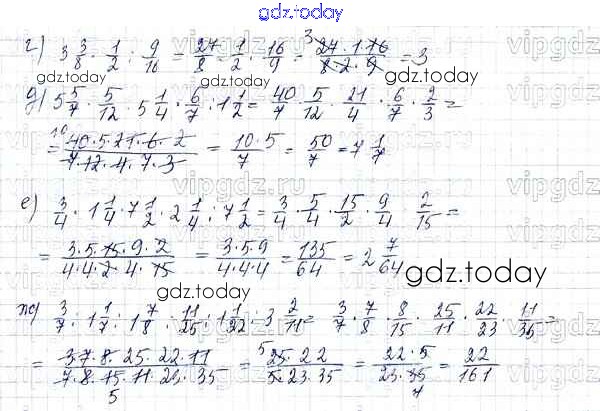 gdz.today
г) 3 3/8 · 1/2 : 9/16 = 27/8 · 1/2 · 16/9 = 27·1·16/8·2·9 = 3
gdz.today
gdz.today
д) 5 5/7 · 5/12 · 5 1/4 · 6/7 : 1 1/2 = 40/7 · 5/12 · 21/4 · 6/7 · 2/3 =
= 40·5·21·6·2/7·12·4·7·3 = 10·5/7 = 50/7 = 7 1/7
е) 3/4 · 1 1/4 · 7 1/2 · 2 1/4 : 7 1/2 = 3/4 · 5/4 · 15/2 · 9/4 · 2/15 =
= 3·5·15·9·2/4·4·2·4·15 = 3·5·9/4·4·4 = 135/64 = 2 7/64
gdz.today
gdz.today
ж) 3/7 : 1 1/7 : 1 7/8 : 11/25 : 1 1/22 : 3 2/11 = 3/7 · 7/8 · 8/15 · 25/11 · 22/23 · 11/35 =
= 3·7·8·25·22·11/7·8·15·11·23·35 = 25·22/5·23·35 = 22·5/23·35 = 22/161
gdz.today
gdz.today